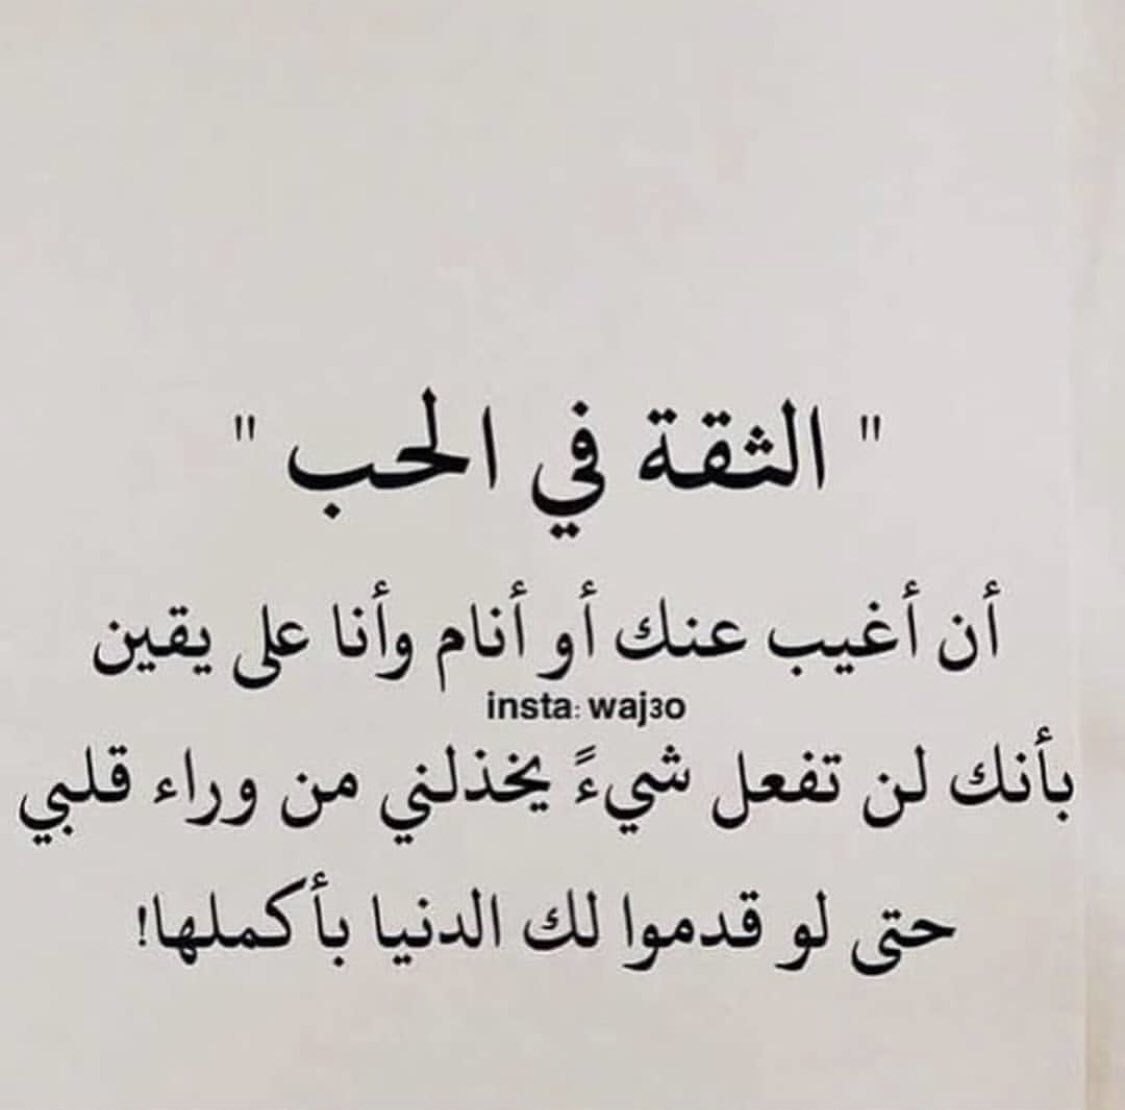 " الثقة في الحب "
أن أغيب عنك أو أنام وأنا على يقين
insta: waj3o
بأنك لن تفعل شيءً يخذلني من وراء قلبي
حتى لو قدموا لك الدنيا بأكملها!